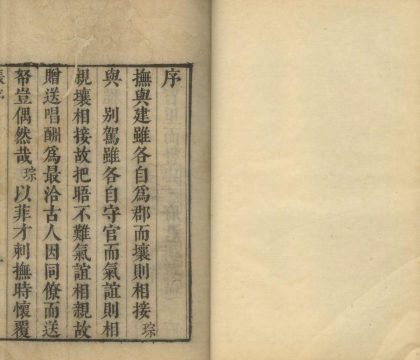 序
撫與建雖各自爲郡而壤則相接琮
與 别駕雖各自守官而氣誼則相
親壤相接故把晤不難氣誼相親故
贈送唱酬爲最洽古人因同僚而送
帑豈偶然哉琮以菲才刺撫時懷覆